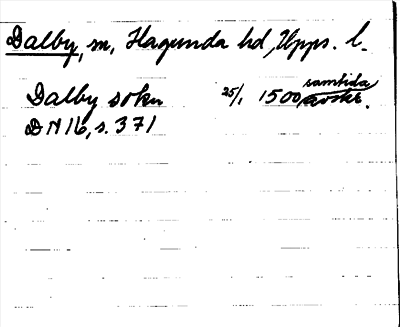 Dalby, sn, Hagunda hd, Upps. l.
samtida
Dalby sokn 25/1 1500, avskr.
DN 16, s. 371